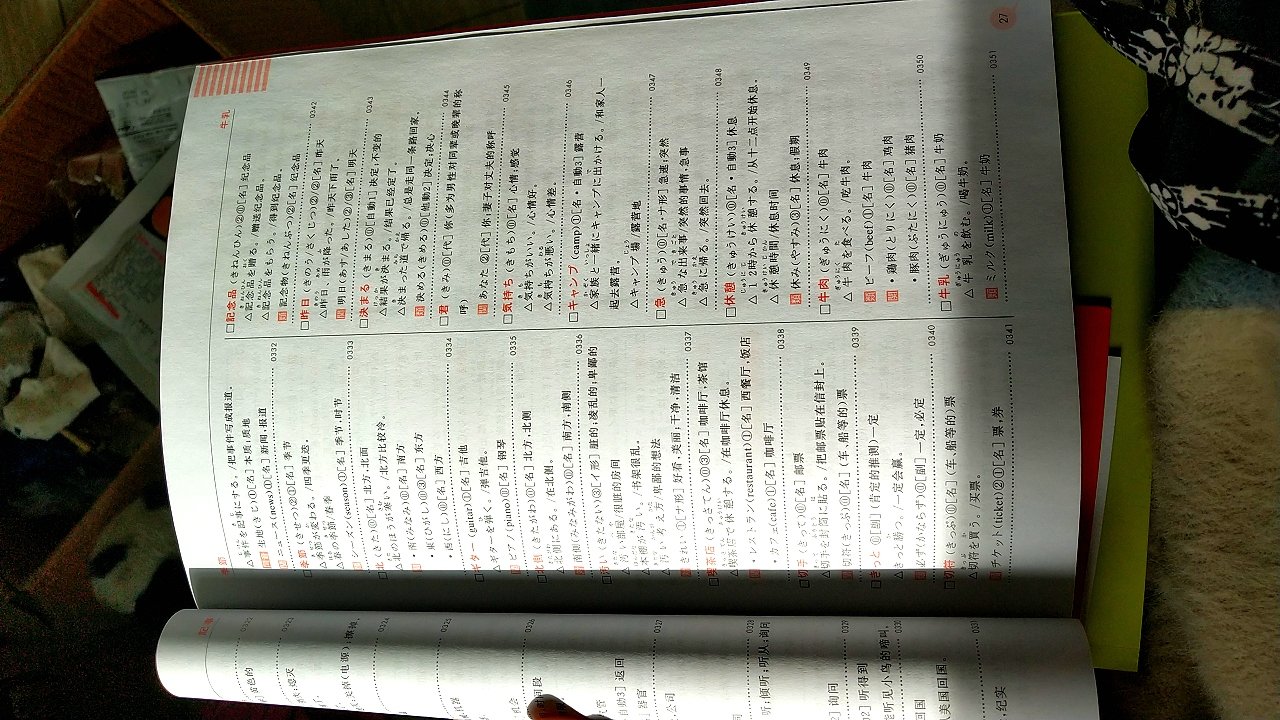 季節
牛乳
△事件を記事にする。/把事件写成报道。
生地(きじ)①[名] 本质,质地
ニュース(news)①[名] 新闻,报道
0332
□季節(きせつ)②①[名] 季节
△季節が変わる。/四季更迭。
△春の季節/春季
シーズン(season)①[名] 季节,时节
0333
□北(きた)⓪[名] 北方,北面
△北のほうが寒い。/北方比较冷。
南(みなみ)⓪[名] 南方
・東(ひがし)⓪③[名] 东方
・西(にし)⓪[名] 西方
0334
□ギター(guitar)①[名] 吉他
△ギターを弾く。/弹吉他。
ピアノ(piano)⓪[名] 钢琴
0335
□北側(きたがわ)⓪[名] 北方,北侧
△北側にある。/在北侧。
南側(みなみがわ)⓪[名] 南方,南侧
0336
□汚い(きたない)③[イ形] 脏的;凌乱的;卑鄙的
△汚い部屋/很脏的房间
△本棚が汚い。/书架很乱。
△汚い考え方/卑鄙的想法
きれい①[ナ形] 好看,美丽;干净,清洁
0337
□喫茶店(きっさてん)⓪③[名] 咖啡厅,茶馆
△喫茶店で休憩する。/在咖啡厅休息。
・レストラン(restaurant)①[名] 西餐厅,饭店
・カフェ(cafe)①[名] 咖啡厅
0338
□切手(きって)⓪[名] 邮票
△切手を封筒に貼る。/把邮票贴在信封上。
切符(きっぷ)⓪[名] (车,船等的)票
0339
□きっと⓪[副] (肯定的推测)一定
△きっと勝つ。/一定会赢。
必ず(かならず)⓪[副] 一定,必定
0340
□切符(きっぷ)⓪[名] (车,船等的)票
△切符を買う。/买票。
チケット(ticket)②①[名] 票,券
0341
□記念品(きねんひん)②⓪[名] 纪念品
△記念品を贈る。/赠送纪念品。
△記念品をもらう。/得到纪念品。
記念物(きねんぶつ)②[名] 纪念品
0342
□昨日(きのう/さくじつ)②/②[名] 昨天
△昨日、雨が降った。/昨天下雨了。
明日(あす/あした)②/③[名] 明天
0343
□決まる(きまる)⓪[自動1] 决定;不变的
△結果が決まる。/结果已经定了。
△決まった道で帰る。/总是走同一条路回家。
決める(きめる)⓪[他動2] 决定,决心
0344
□君(きみ)⓪[代] 你(多为男性对同辈或晚辈的称
呼)
あなた ②[代] 你;妻子对丈夫的称呼
0345
□気持ち(きもち)⓪[名] 心情,感觉
△気持ちがいい。/心情好。
△気持ちが悪い。/心情差。
0346
□キャンプ(camp)①[名・自動3] 露营
△家族と一緒にキャンプに出かける。/和家人一
起去露营。
△キャンプ場/露营地
0347
□急(きゅう)⓪[名・ナ形] 急速;突然
△急な出来事/突然的事情,急事
△急に帰る。/突然回去。
0348
□休憩(きゅうけい)⓪[名・自動3] 休息
△12時から休憩する。/从十二点开始休息。
△休憩時間/休息时间
休み(やすみ)③[名] 休息,假期
0349
□牛肉(ぎゅうにく)⓪[名] 牛肉
△牛肉を食べる。/吃牛肉。
ビーフ(beef)①[名] 牛肉
・鶏肉(とりにく)⓪[名] 鸡肉
・豚肉(ぶたにく)⓪[名] 猪肉
0350
□牛乳(ぎゅうにゅう)⓪[名] 牛奶
△牛乳を飲む。/喝牛奶。
ミルク(milk)①[名] 牛奶
0351
27